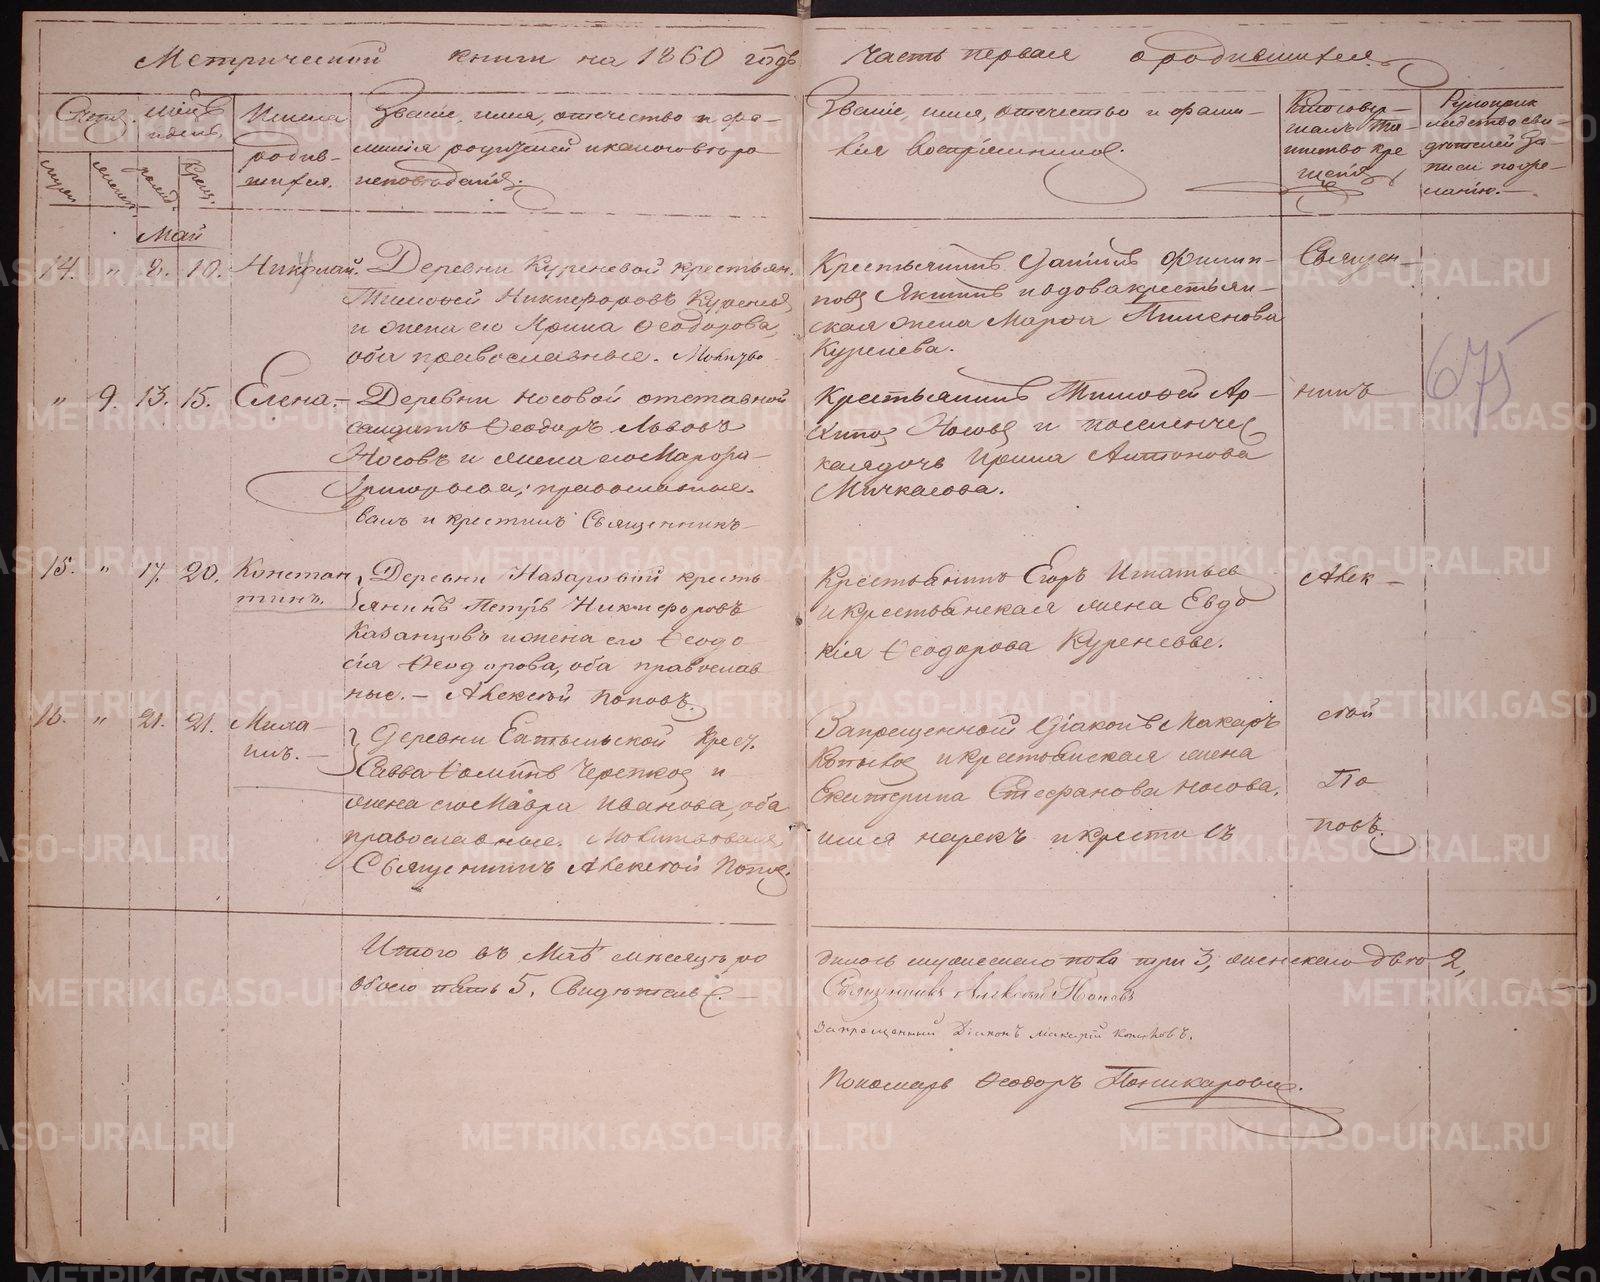 Метрической книги на 1860 годъ
Часть первая о родившихся.
Счетъ
Имена родив-
шихся.
Званіе, имя, отчество и фа-
милія родителей и какого вѣро
исповѣданія.
Званіе, имя, отчество и фами-
лія воспріемниковъ.
Кто совер-
шалъ Та-
инство кре
щенія
Рукоприк
ладство сви-
дѣтелей за-
писи по же-
ланію.
Май
14. " 8. 10. Николай. Деревни Куреневой крестьян.
Тимофей Никифоровъ Куреневъ
и жена его Ирина Ѳеодорова,
оба православные. Молитво
Крестьянинъ Даніилъ Филип-
повъ Якшинъ и вдова крестьян-
ская жена Марфа Пименова
Куренева.
Священ-
" 9. 13. 15. Елена. Деревни Носовой отставной
солдатъ Ѳеодоръ Львовъ
Носовъ и жена его Марфа
Григорьева; православные.
валъ и крестилъ Священникъ
Крестьянинъ Тимофей Ар-
Носовъ и поселенчес
кая дочь Ирина Антонова
Мичкасова.
никъ
15. " 17. 20. Констан
тинъ. Деревни Назаровой кресть
янинъ Петръ Никифоровъ
Казанцовъ и жена его Ѳеодо
сія Ѳеодорова, оба православ
ные. – Алексѣй Поповъ.
Крестьянинъ Егоръ Игнатьев
и крестьянская жена Евдо
кія Ѳеодорова Куреневы.
Алек-
16. " 21. 21. Миха-
илъ. Деревни Крест.
Савва Ѳоминъ и
жена его Мавра Иванова, оба
православные. Молитвовалъ,
Священникъ Алексѣй Поповъ.
Запрещенной Діаконъ Макаръ
Копыловъ и крестьянская жена
Екатерина Стефанова Носова.
имя нарекъ и крестилъ
сѣй
По
повъ.
Итого въ Маѣ мѣсяцѣ ро
дилось мужескаго пола три 3, женскаго двѣ 2,
обоего пять 5. Свидѣтельс.
Священникъ Алексѣй Поповъ
Запрещенный Діаконъ Макарій Копыловъ.
Пономарь Ѳеодоръ Поникаровъ.
675
METRIKI.GASO-URAL.RU